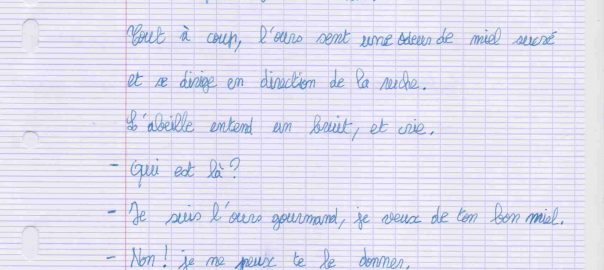 Tout à coup, l'ours sent une odeur de miel sucré
et se dirige en direction de la ruche.
L'abeille entend un bruit, et crie.
- Qui est là?
- Je suis l'ours gourmand, je veux de ton bon miel.
- Non! je ne peux te le donner.